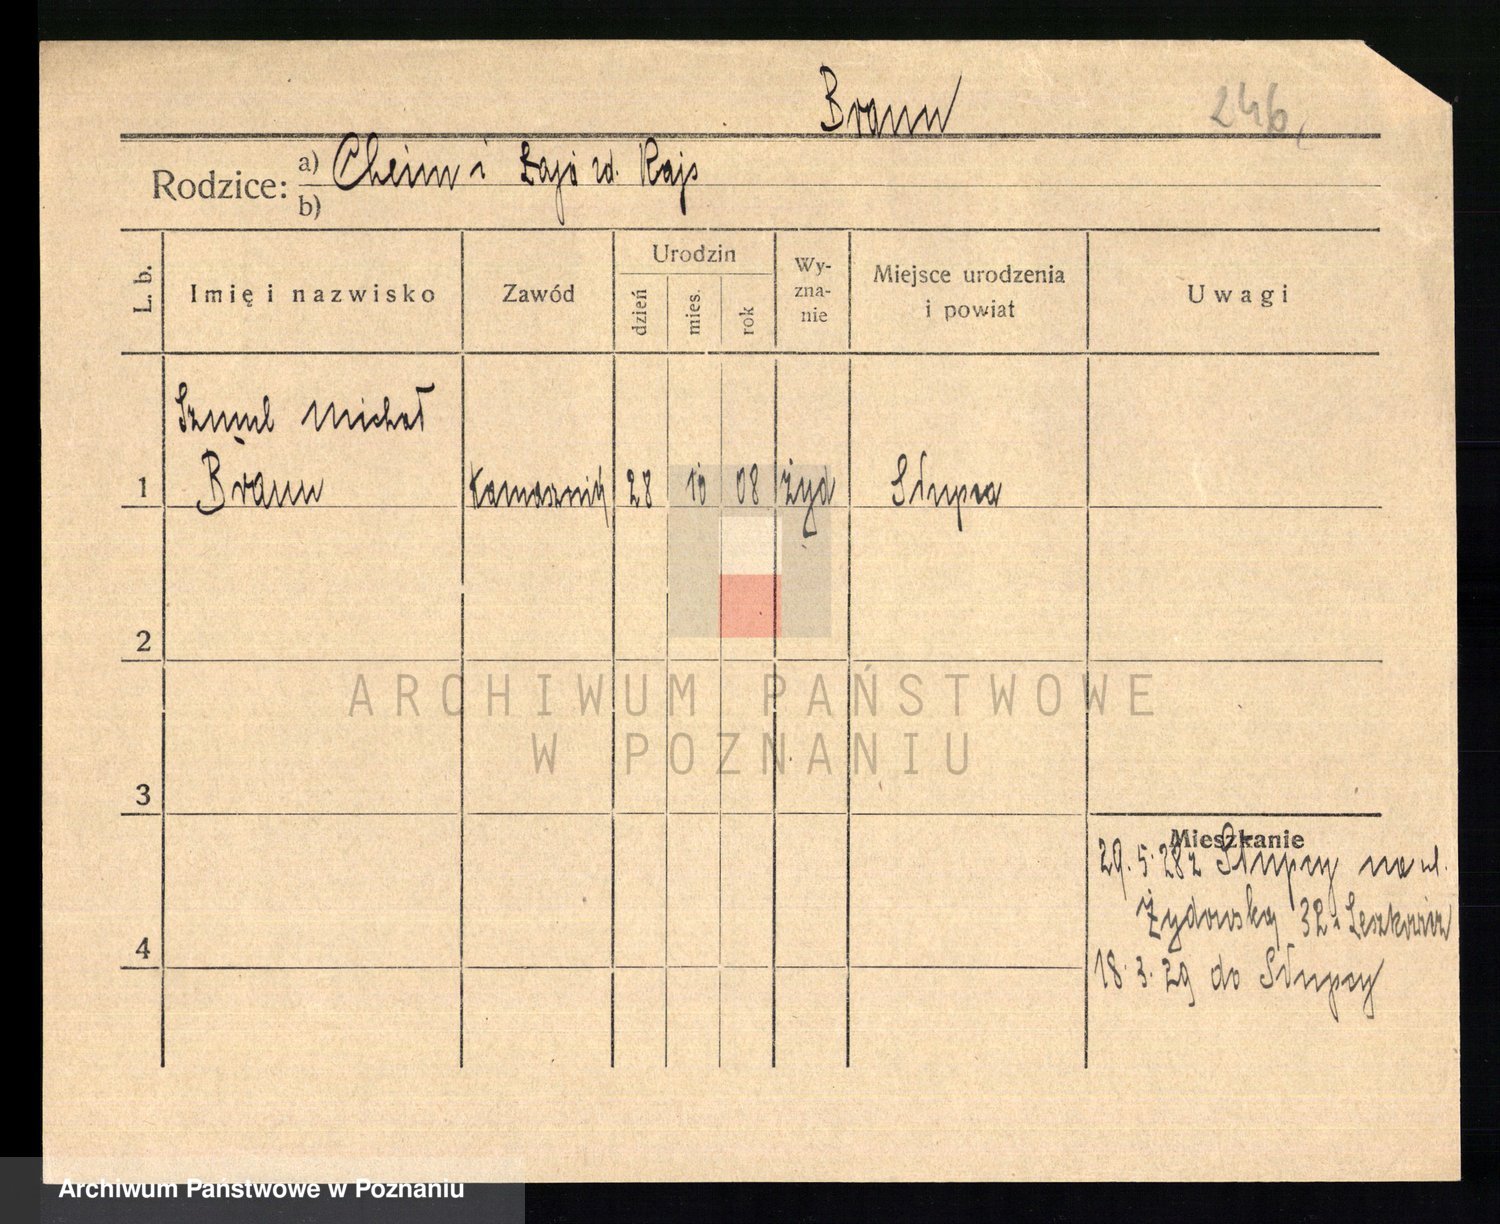 Braun
246
Rodzice: a) Cheim i Łaja zd. Rajs
b)
L. b.
Imię i nazwisko
Zawód
Urodzin
dzień
mies.
rok
Wy-
zna-
nie
Miejsce urodzenia
i powiat
Uwagi
Szmul Michał
1 Braun Kamasznik 28 10 08 żyd Słupca
2
ARCHIWUM PAŃSTWOWE
W POZNANIU
3
Mieszkanie
29.5.28 z Słupcy na ul.
Żydowską 32 Leszkowicz
4
18.3.29 do Słupcy
Archiwum Państwowe w Poznaniu